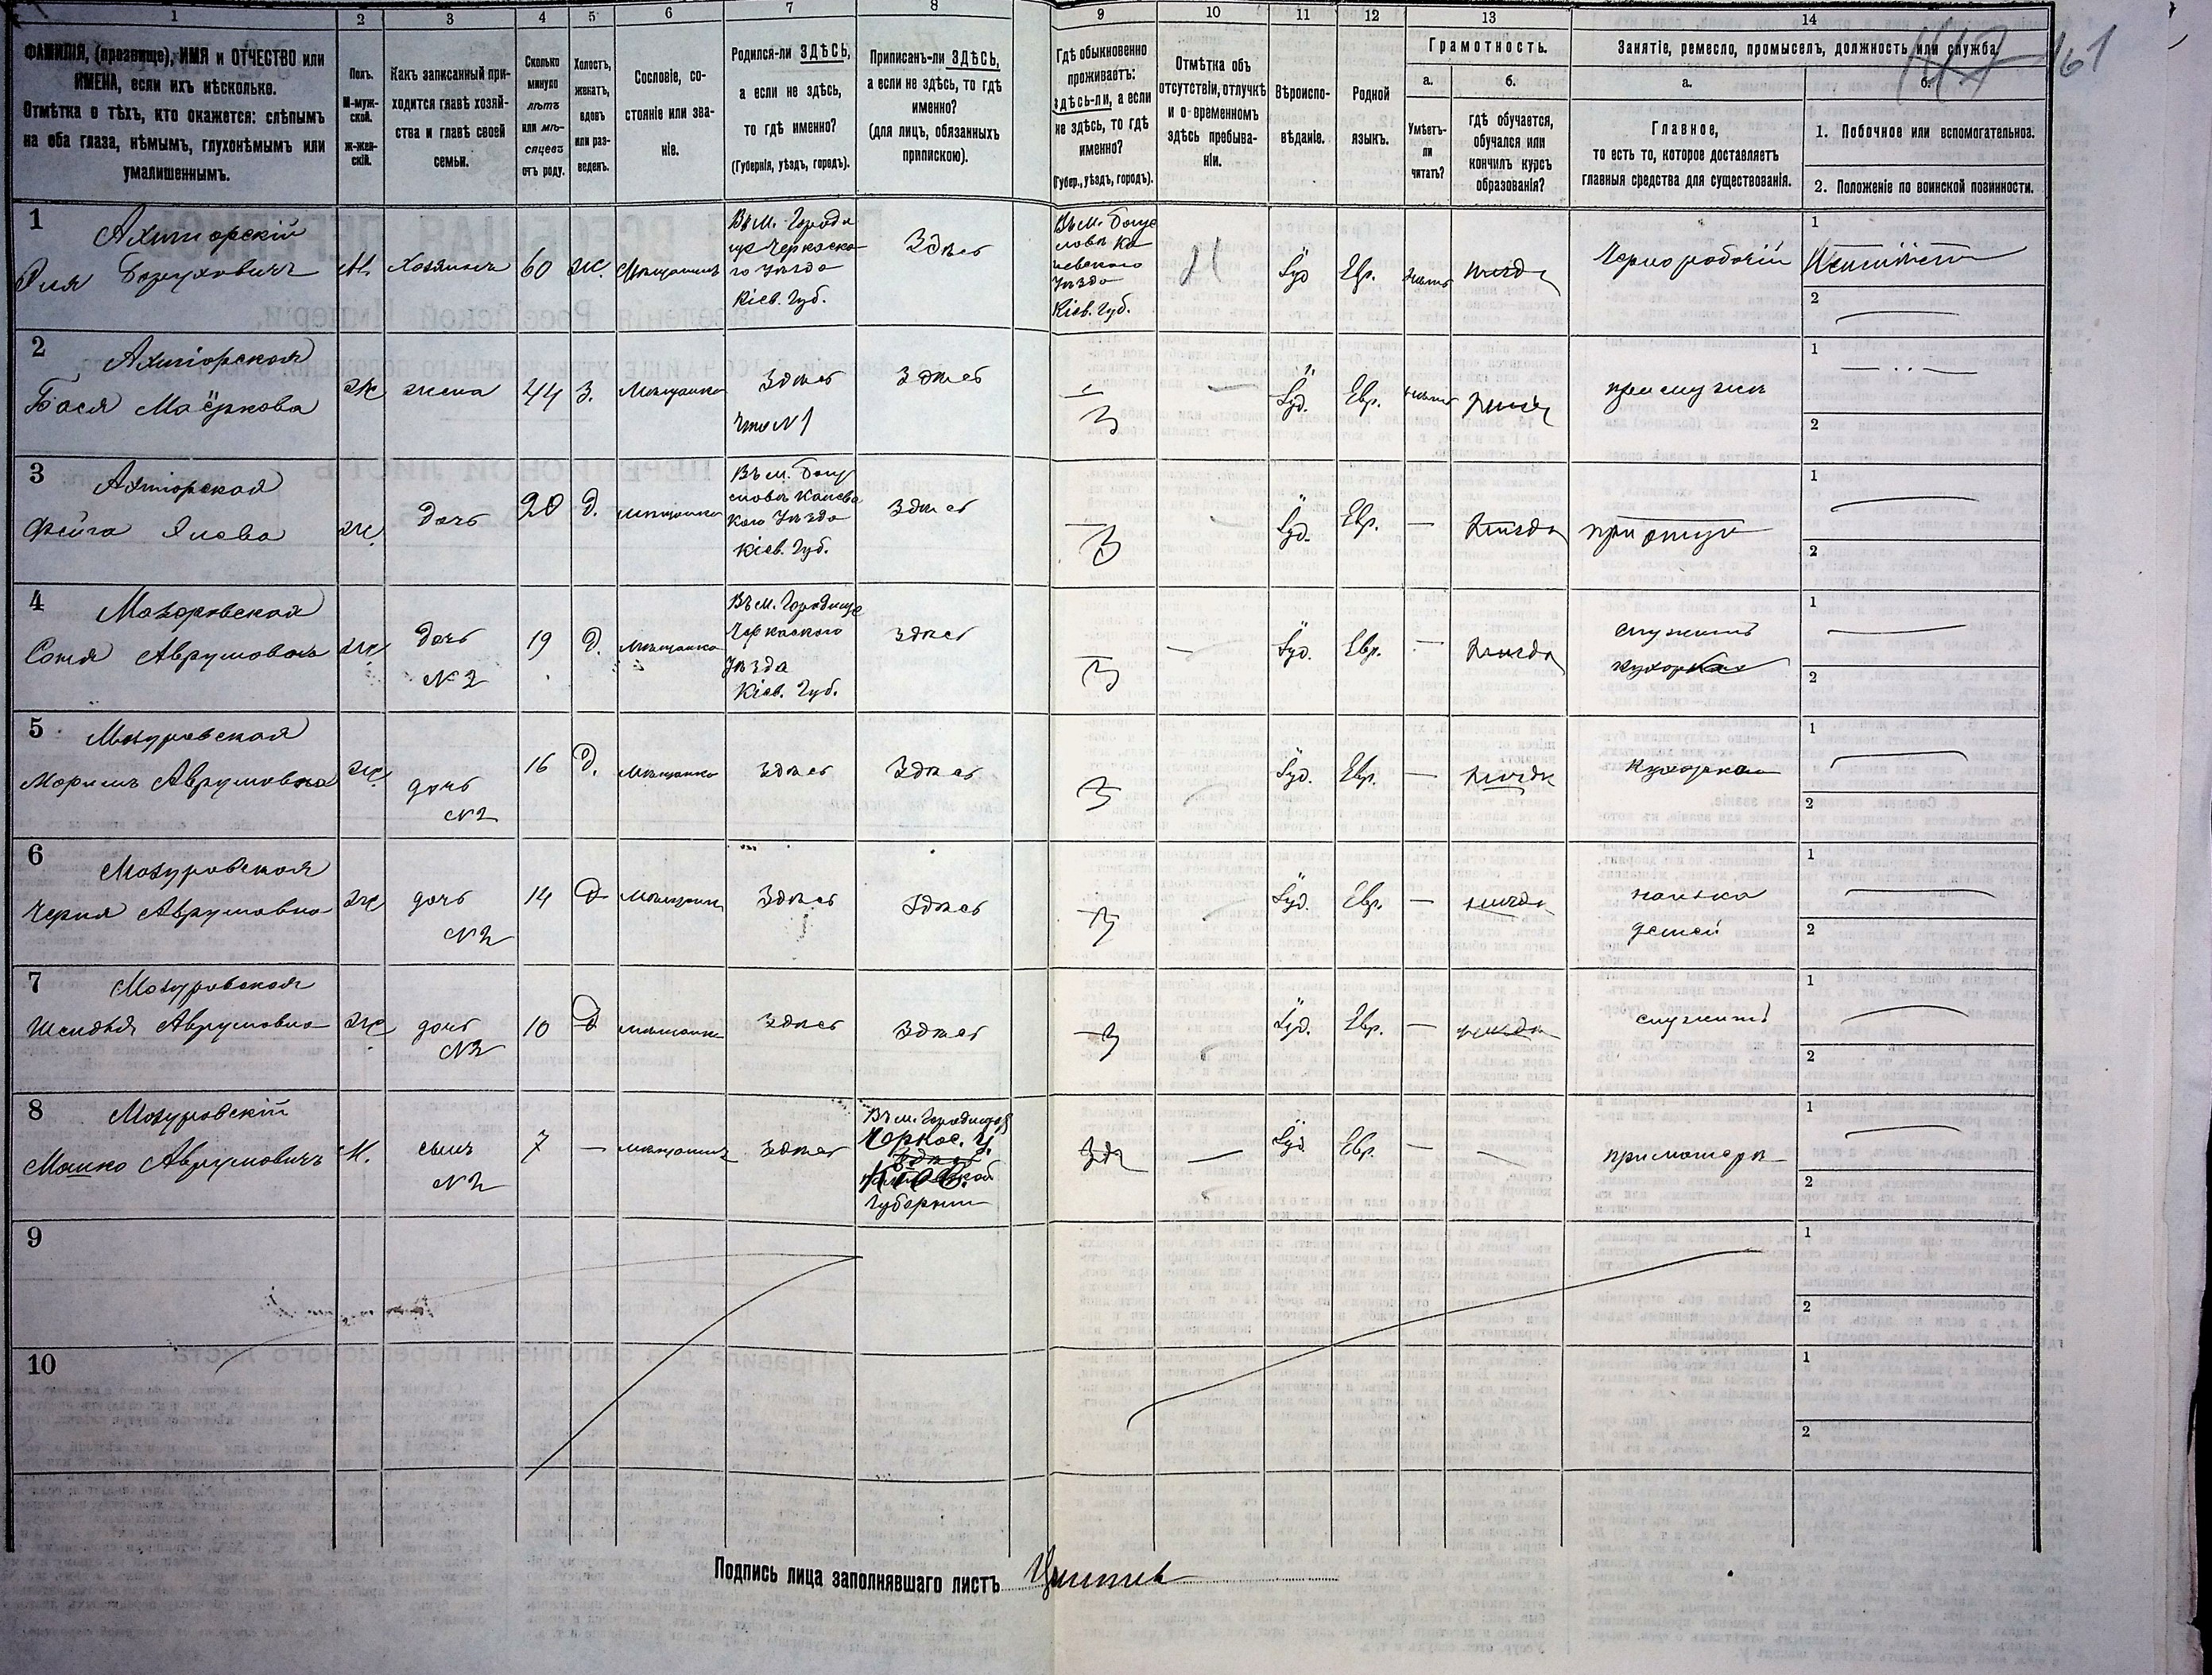 1 2 3 4 5 6 7 8 9 10 11 12 13 14
ФАМИЛІЯ, (прозвище), ИМЯ и ОТЧЕСТВО или
ИМЕНА, если ихъ нѣсколько.
Отмѣтка о тѣхъ, кто окажется: слѣпымъ
на оба глаза, нѣмымъ, глухонѣмымъ или
умалишеннымъ.
Полъ.
М-муж-
ской.
Ж-жен-
скій.
Какъ записанный при-
ходится главѣ хозяй-
ства и главѣ своей
семьи.
Сколько
минуло
лѣтъ
или мѣ-
сяцевъ
отъ роду.
Холостъ,
женатъ,
вдовъ
или раз-
веденъ.
Сословіе, со-
стояніе или зва-
ніе.
Родился-ли ЗДѢСЬ,
а если не здѣсь,
то гдѣ именно?
(Губернія, уѣздъ, городъ).
Приписанъ-ли ЗДѢСЬ,
а если не здѣсь, то гдѣ
именно?
(для лицъ, обязанныхъ
припискою).
Гдѣ обыкновенно
проживаетъ:
здѣсь-ли, а если
не здѣсь, то гдѣ
именно?
(Губер., уѣздъ, городъ).
Отмѣтка объ
отсутствіи, отлучкѣ
и о временномъ
здѣсь пребыва-
ніи.
Вѣроиспо-
вѣданіе.
Родной
языкъ.
Грамотность.
а.
Умѣетъ-
ли
читать?
б.
гдѣ обучается,
обучался или
кончилъ курсъ
образованія?
Занятіе, ремесло, промыселъ, должность или служба.
147 161
а.
Главное,
то есть то, которое доставляетъ
главныя средства для существованія.
б.
1. Побочное или вспомогательное.
2. Положеніе по воинской повинности.
1 Ахтторскій
Эля
М. Хозяинъ 60 ж. Мѣщанинъ
Въ м. Городи
ще Черкаска
го Уѣзда
Кіев. Губ.
Здѣсь
Въ м. Богус
лавѣ Ка
невскаго
Уѣзда
Кіев. Губ.
Іуд Евр. Чернорабочій
1
2
2 Ахтторская
Бася Маёркова
ж жена 44 З. Мѣщанка Здѣсь
что №1
Здѣсь
З Іуд. Евр. при мужѣ
1
2
3 Ахтторская
Фейга Элева
ж. дочь 20 Д. мѣщанка
Въ м. Богу
славѣ Канев
каго Уѣзда
Кіев. Губ.
Здѣсь
З Іуд. Евр. — при отцѣ
1
2
4 Мазоровская
Соня Аврумовна
ж дочь
№ 2
19 Д. мѣщанка
Въ м. Городище
Черкаскаго
Уѣзда
Кіев. Губ.
здѣсь
З — Іуд. Евр. —
служитъ
кухарка
1
2
5 Мазуровская
Маримъ Аврумовна
ж. дочь
№2
16 Д. мѣщанка здѣсь Здѣсь
З Іуд. Евр. — кухарка
1
2
6 Мазуровская
Черня Аврумовна
ж дочь
№2
14 Д мѣщанка Здѣсь Здѣсь
З Іуд. Евр. —
нанька
детей
1
2
7 Мазуровская
Шендля Аврумовна
ж дочь
№2
10 Д мѣщанка Здѣсь Здѣсь
З Іуд. Евр. — служитъ
1
2
8 Мазуровскій
Мошко Аврумовичъ
М. сынъ
№2
7 — мѣщанинъ здѣсь
Въ м. Городищѣ
Черкас. у.
Здѣсь
Кіев.
Губерніи
Зд — Іуд Евр. — — при матери
1
2
9
1
2
10
1
2
Подпись лица заполнявшаго листъ